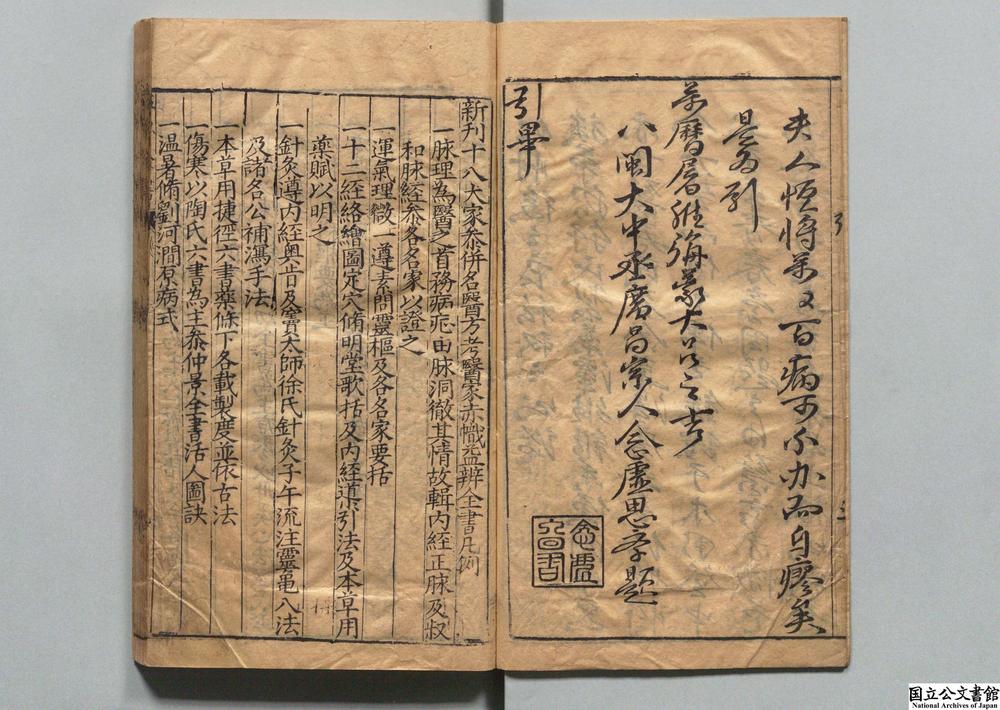 夫人恒將萬又百病可不办而自瘳矣
是为引
萬曆屠維
大吕之吉
八閩大中丞廣昌宗人念虛思孝題
引畢
新刊十八大家叅併名醫方考醫家赤幟益辨全書凡例
一脉理為醫之首務病疕由脉洞徹其情故輯内經正脉及叔
和脉經叅各名家以證之
一運氣理微一遵素問靈樞及各名家要括
一十二經絡繪圖定穴脩明堂歌括及内經導引法及本草用
藥賦以明之
一針灸遵内經奥㫖及竇太師徐氏針灸子午流注靈龜八法
及諸名公補瀉手法
一本草用捷徑六書藥條下各載製度並依古法
一傷寒以陶氏六書為主叅仲景全書活人圖訣
一温暑脩劉河澗原病式
国立公文書館
National Archives of Japan